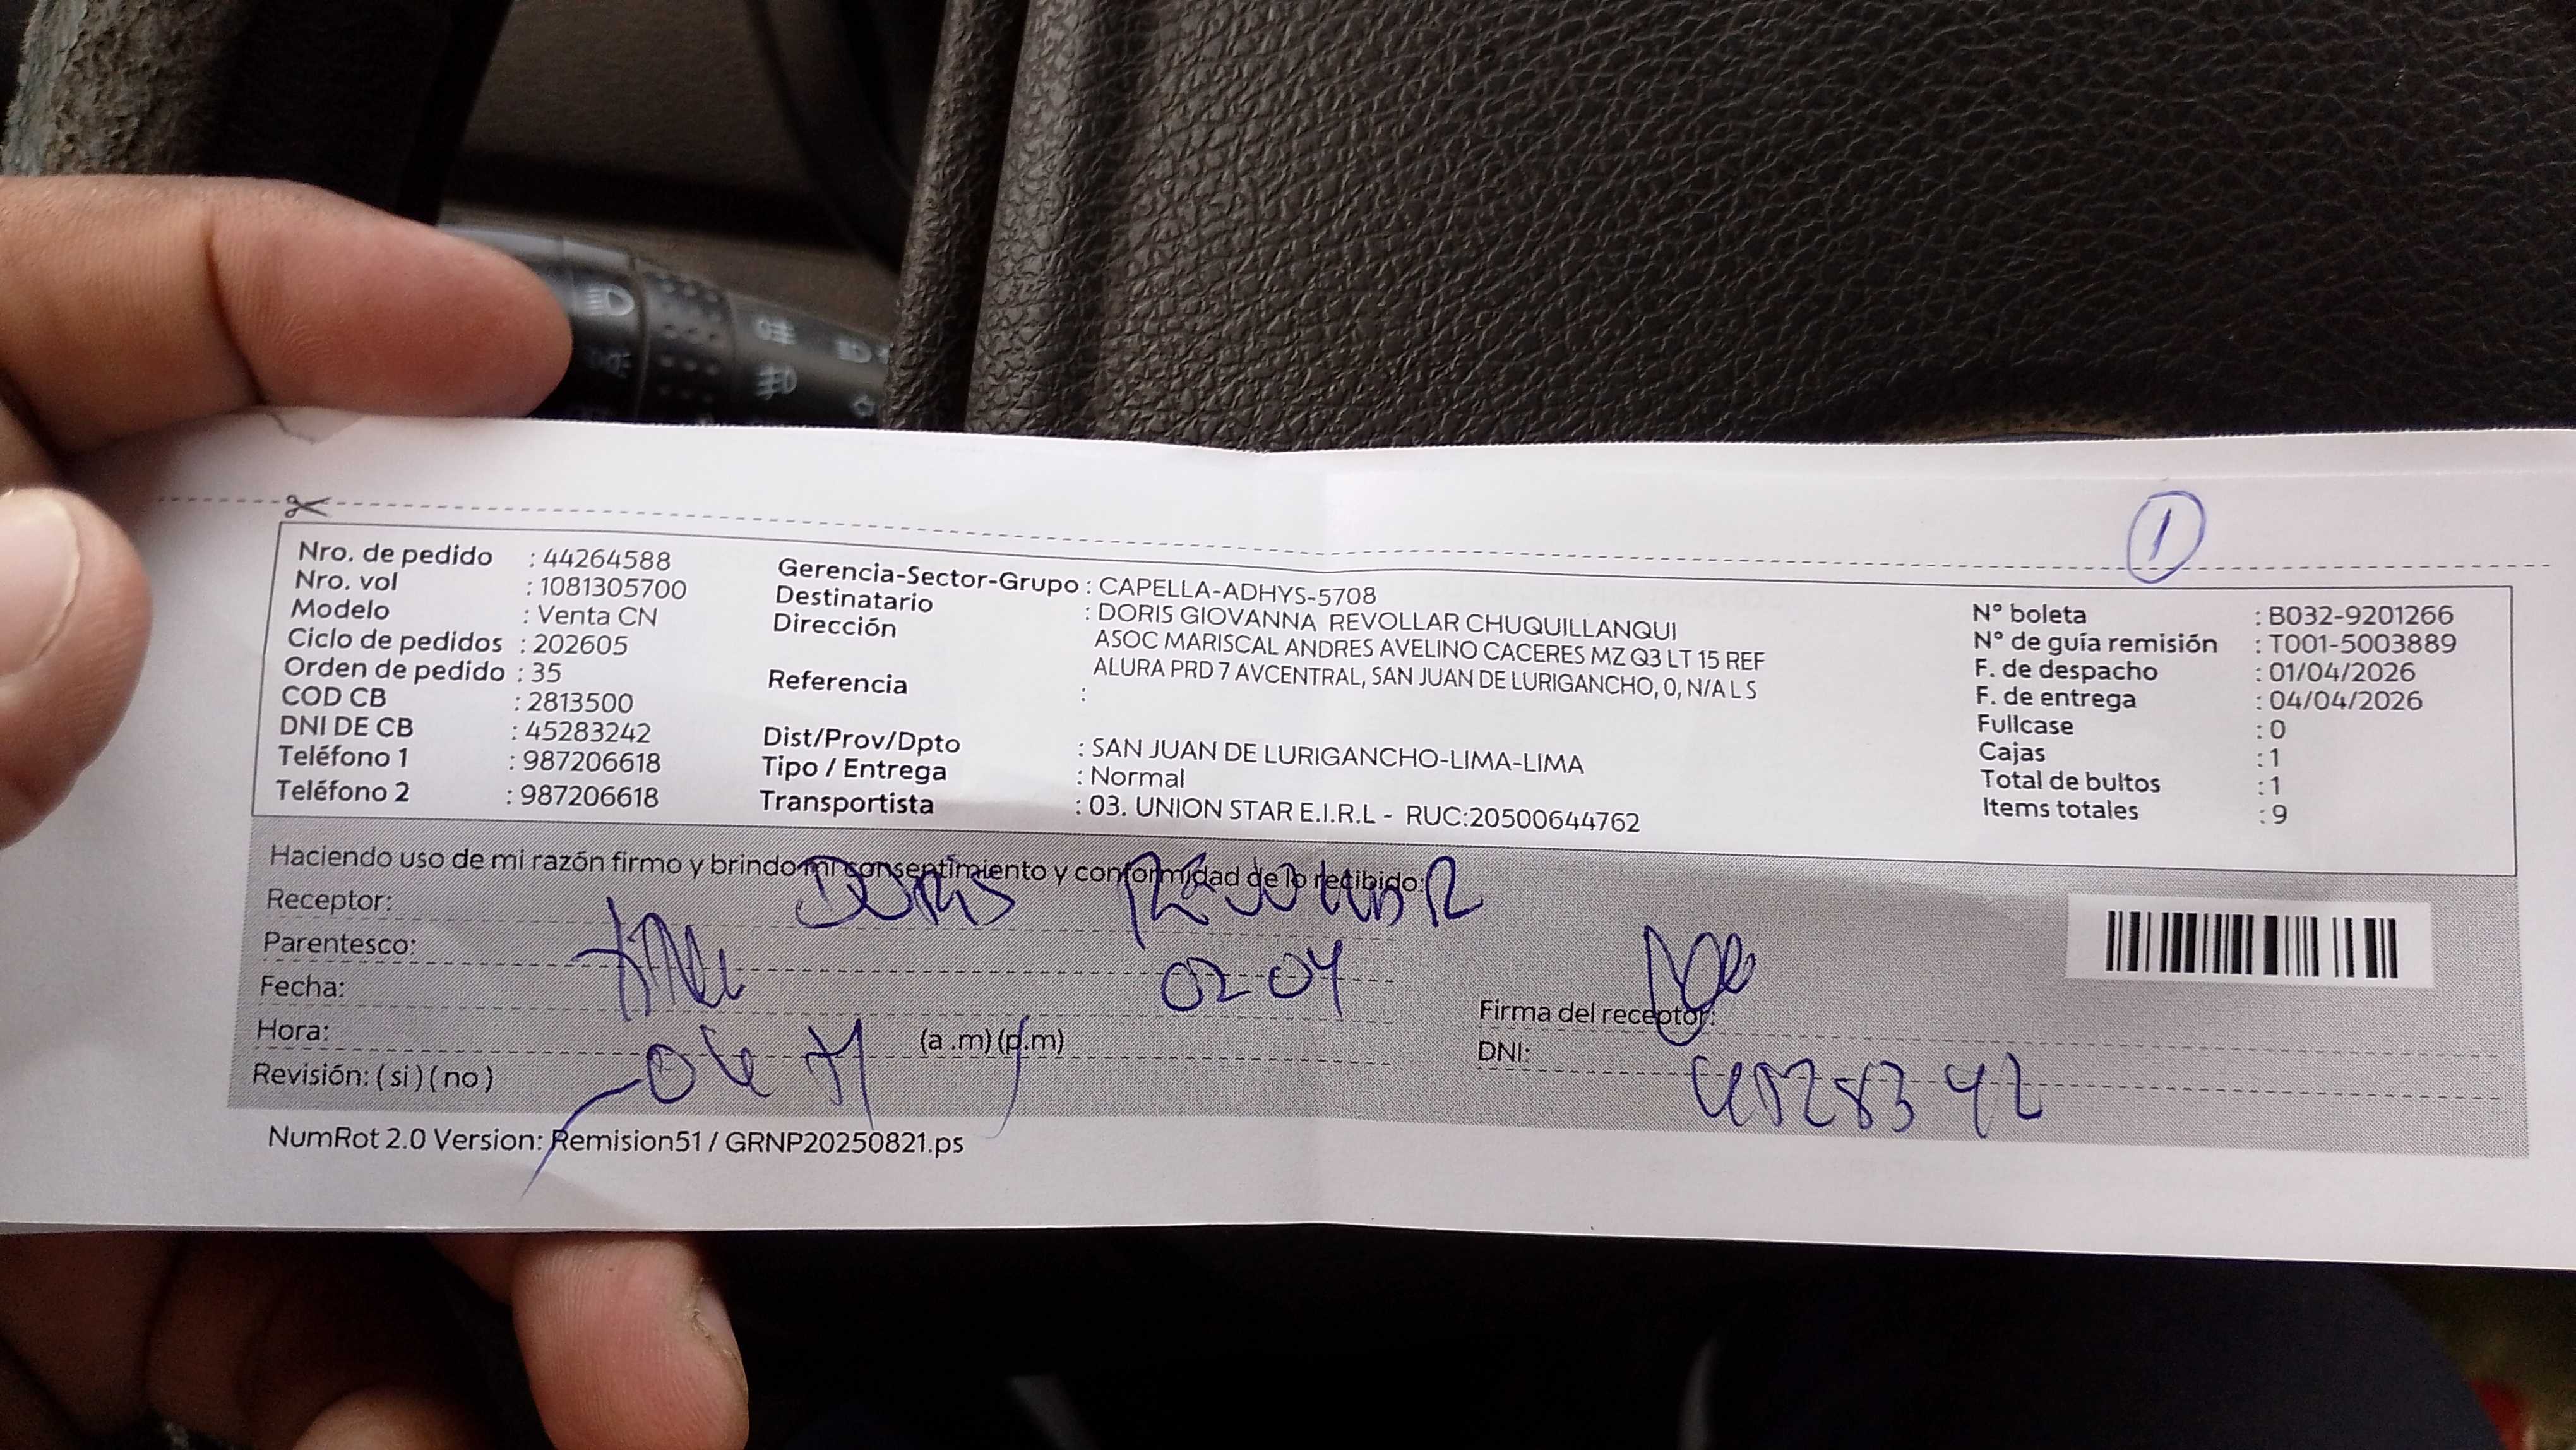 1
Nro. de pedido : 44264588
Nro. vol : 1081305700
Modelo : Venta CN
Ciclo de pedidos : 202605
Orden de pedido : 35
COD CB : 2813500
DNI DE CB : 45283242
Teléfono 1 : 987206618
Teléfono 2 : 987206618
Gerencia-Sector-Grupo : CAPELLA-ADHYS-5708
Destinatario : DORIS GIOVANNA REVOLLAR CHUQUILLANQUI
Dirección ASOC MARISCAL ANDRES AVELINO CACERES MZ Q3 LT 15 REF
ALURA PRD 7 AVCENTRAL, SAN JUAN DE LURIGANCHO, 0, N/A L S
Referencia :
Dist/Prov/Dpto : SAN JUAN DE LURIGANCHO-LIMA-LIMA
Tipo / Entrega : Normal
Transportista : 03. UNION STAR E.I.R.L - RUC:20500644762
N° boleta : B032-9201266
N° de guía remisión : T001-5003889
F. de despacho : 01/04/2026
F. de entrega : 04/04/2026
Fullcase : 0
Cajas : 1
Total de bultos : 1
Items totales : 9
Haciendo uso de mi razón firmo y brindo mi consentimiento y conformidad de lo recibido:
Receptor: DORIS
Parentesco:
Fecha: 02 04
Hora: (a.m)(p.m)
Revisión: (si)(no)
Firma del receptor:
DNI:
NumRot 2.0 Version: Remision51 / GRNP20250821.ps